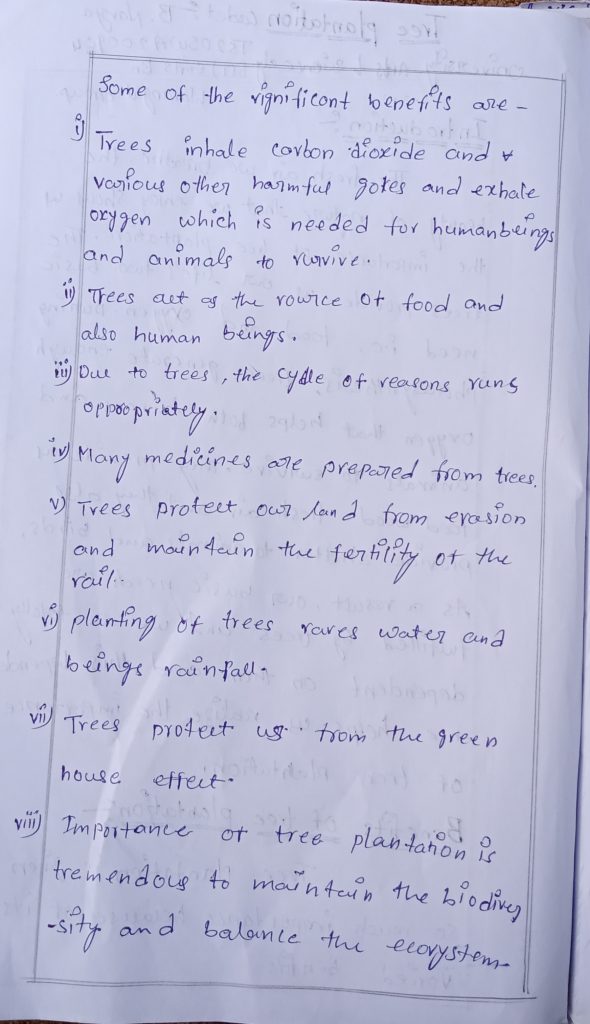 Some of the significant benefits are -
i) Trees inhale carbon dioxide and &
various other harmful gases and exhale
oxygen which is needed for humanbeings
and animals to survive.
ii) Trees act as the source of food and
also human beings.
iii) Due to trees, the cycle of seasons runs
appropriately.
iv) Many medicines are prepared from trees.
v) Trees protect our land from erasion
and maintain the fertility of the
soil.
vi) planting of trees saves water and
beings rainfall.
vii) Trees protect us from the green
house effect.
viii) Importance of tree plantation is
tremendous to maintain the biodiver
-sity and balance the ecosystem